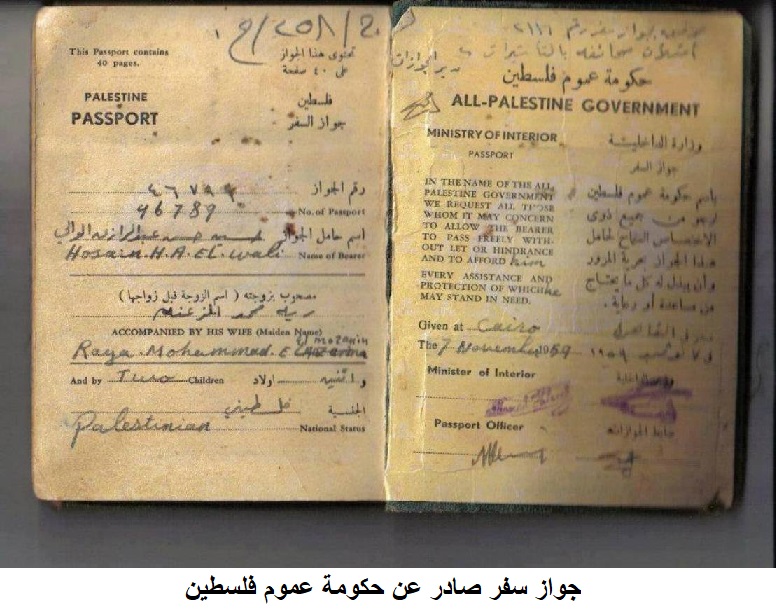 This Passport contains
40 pages.
تحتوى هذا الجواز
على ٤٠ صفحة
PALESTINE
PASSPORT
فلسطين
جواز السفر
رقم الجواز
46789
No. of Passport
اسم حامل الجواز
Hosain. H. A. EL. wali
Name of Bearer
مصحوب بزوجته ( اسم الزوجة قبل زواجها )
ACCOMPANIED BY HIS WIFE (Maiden Name)
Raya. Mohammad. El
And by Two Children
اولاد
الجنسية
فلسطيني
Palestinian
National Status
حكومة عموم فلسطين
ALL-PALESTINE GOVERNMENT
MINISTRY OF INTERIOR
وزارة الداخلية
PASSPORT
جواز السفر
IN THE NAME OF THE ALL-
PALESTINE GOVERNMENT
WE REQUEST ALL THOSE
WHOM IT MAY CONCERN
TO ALLOW THE BEARER
TO PASS FREELY WITH-
OUT LET OR HINDRANCE
AND TO AFFORD him
EVERY ASSISTANCE AND
PROTECTION OF WHICH he
MAY STAND IN NEED.
باسم حكومة عموم فلسطين
نرجو من جميع ذوى
الاختصاص السماح لحامل
هذا الجواز بحرية المرور
وأن يبذل له كل ما يحتاج
من مساعدة أو رعاية .
Given at Cairo
The 7 November 1959
Minister of Interior
وزير الداخلية
Passport Officer
ضابط الجوازات
جواز سفر صادر عن حكومة عموم فلسطين